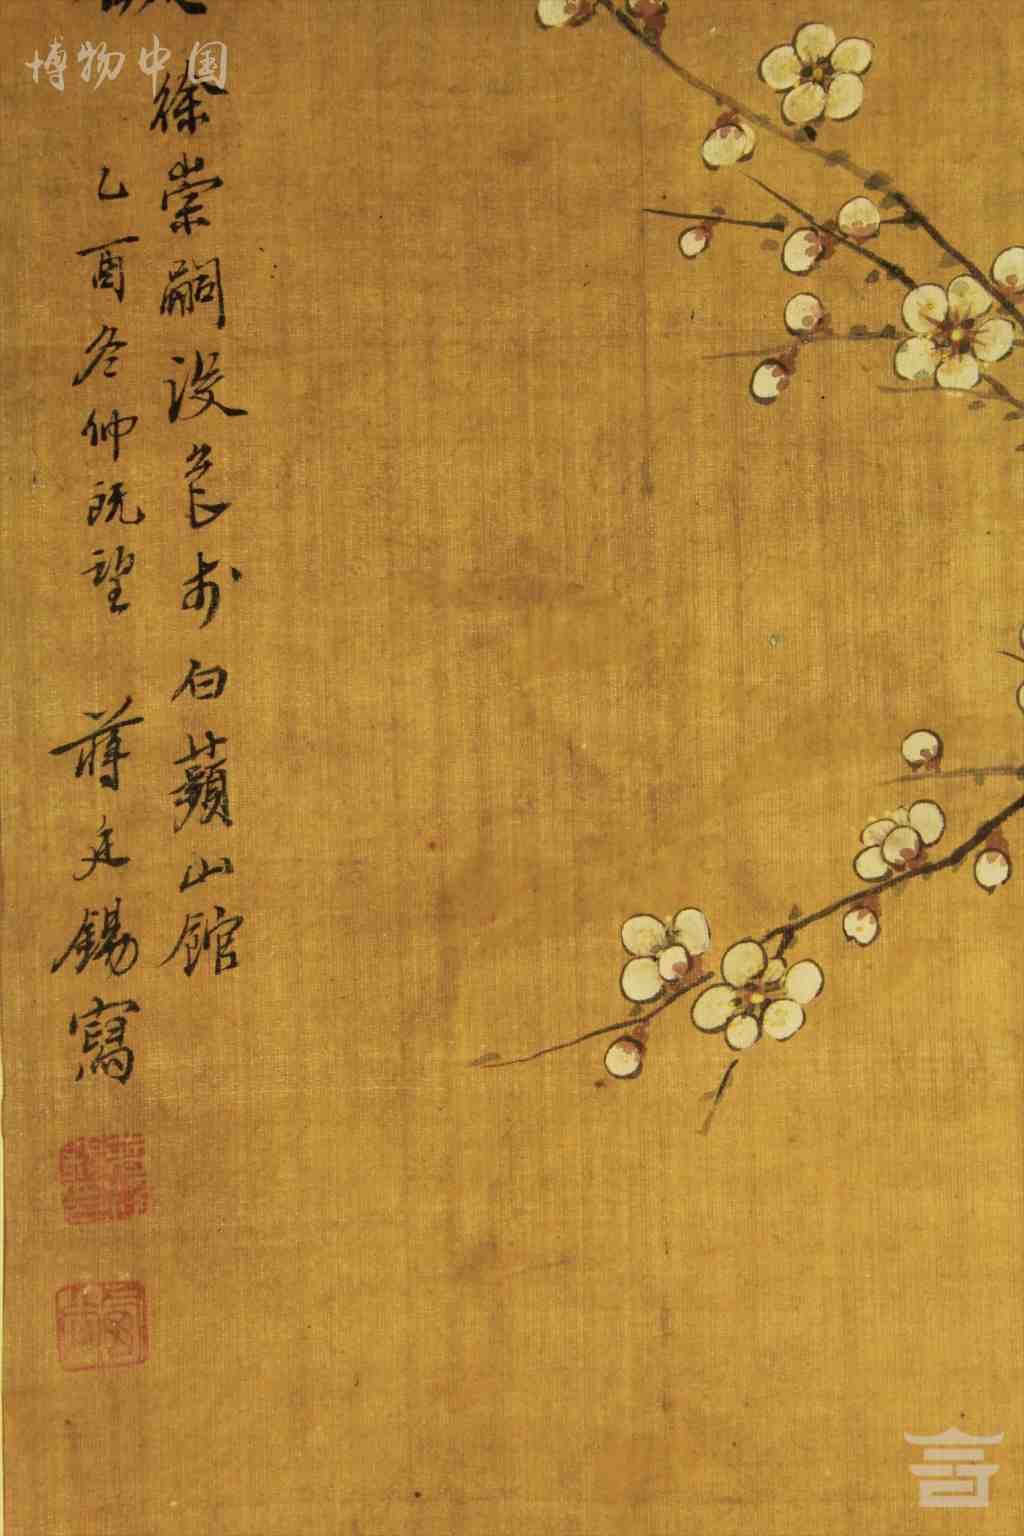 博物中国
徐崇嗣设色于白蘋山館
乙酉冬仲既望 蔣廷錫寫